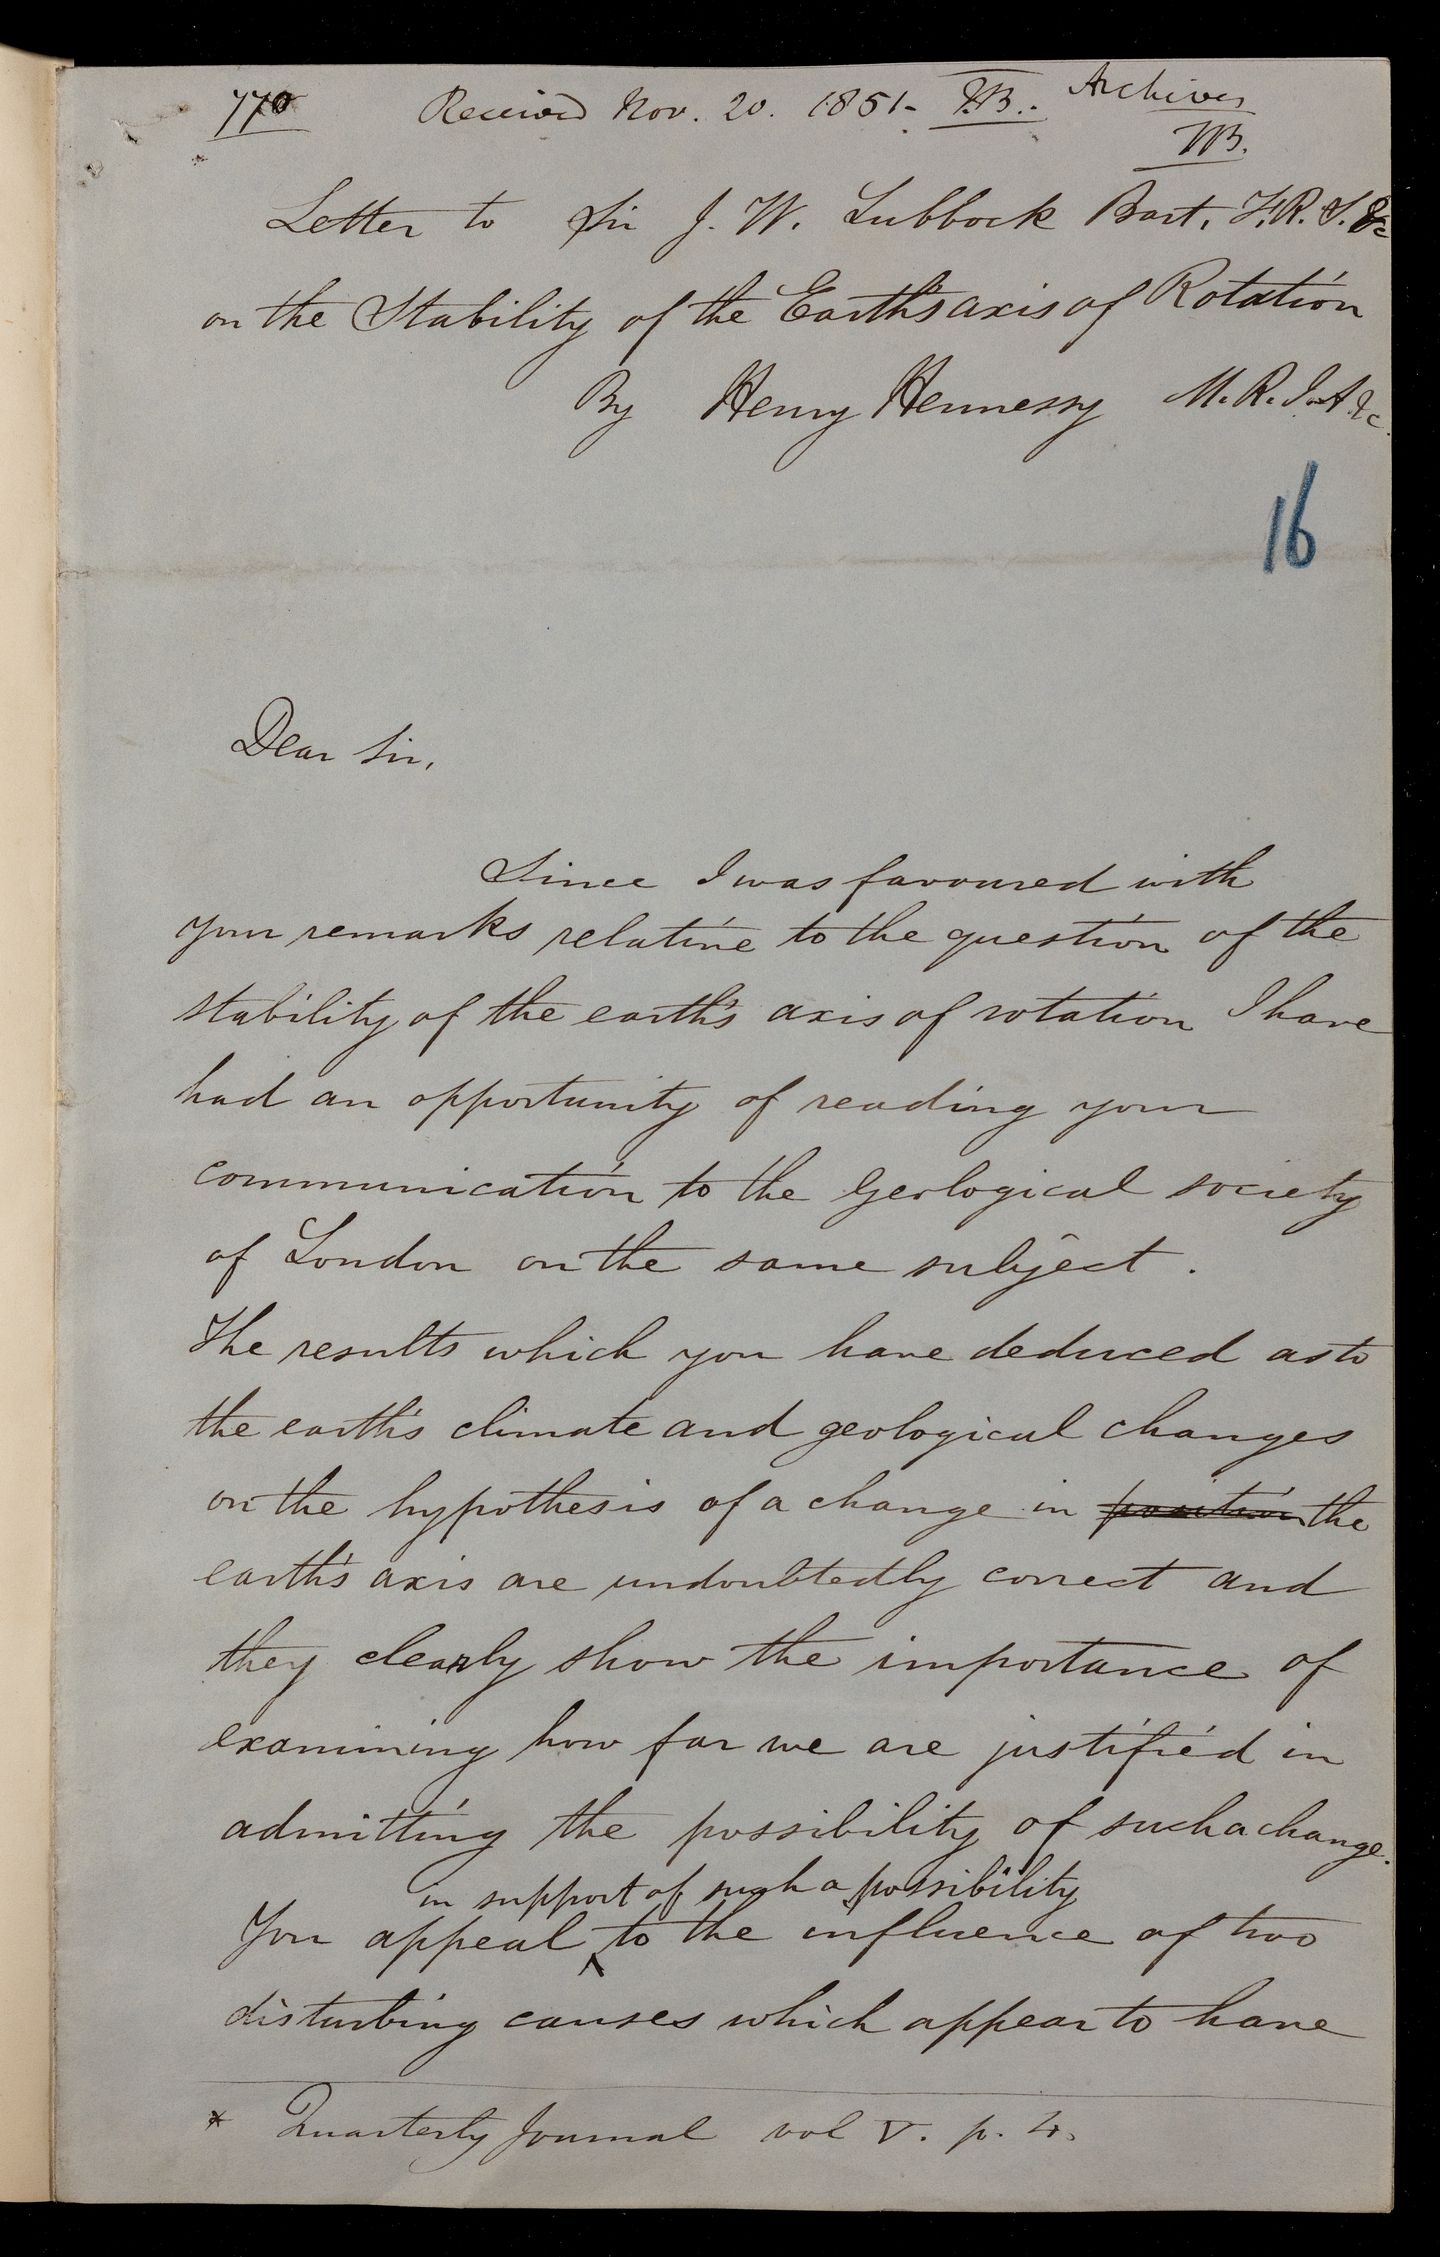 770 Received Nov. 20. 1851- TB. Archives
TB.
Letter to Sir J. W. Lubbock Bart. F.R.S. &c
on the Stability of the Earth's axis of Rotation
By Henry Hennessy M.R.I.A. &c.
16
Dear Sir,
Since I was favoured with
your remarks relative to the question of the
stability of the earth's axis of rotation I have
had an opportunity of reading your
communication to the Geological society
of London on the same subject.
The results which you have deduced as to
the earth's climate and geological changes
on the hypothesis of a change in position the
earth's axis are undoubtedly correct and
they clearly show the importance of
examining how far we are justified in
admitting the possibility of such a change.
in support of such a possibility
You appeal ^ to the influence of two
disturbing causes which appear to have
* Quarterly Journal vol V. p. 4.